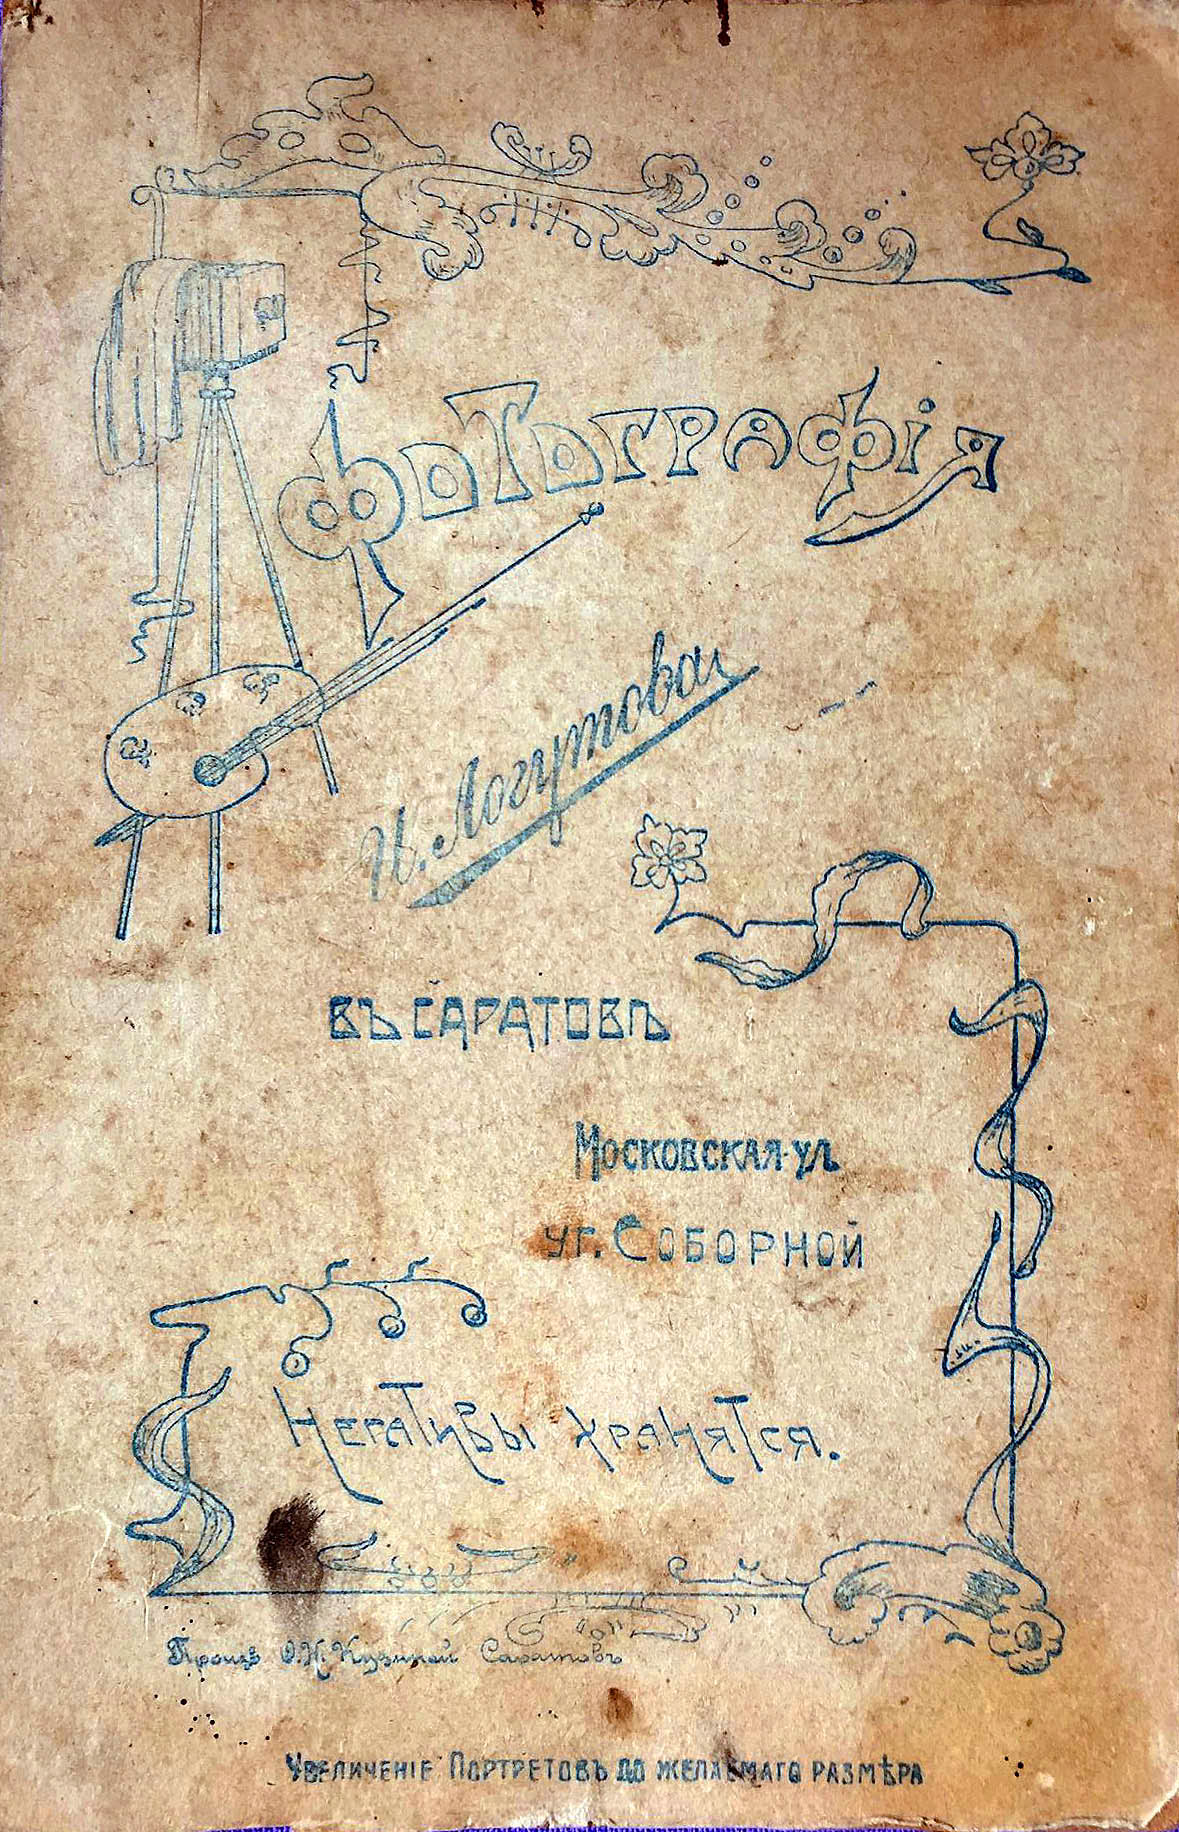 Фотографія
Н. Могутова
въ Саратовѣ
Московская ул.
уг. Соборной
Негативы хранятся.
Произв О.Н. Кузиной Саратовъ
Увеличеніе Портретовъ до желаемаго размѣра